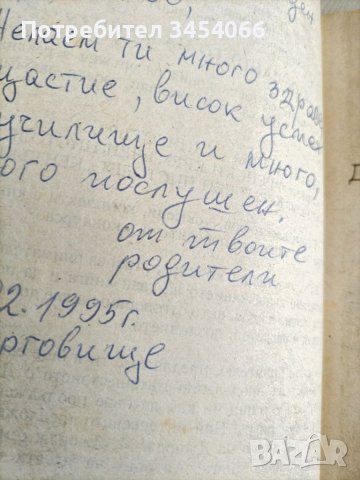 Потребител 3454066
ден
Желаем ти много здраве
щастие, висок успех
училище и много,
ого послушен.
от твоите
родители
2.1995г.
рговище
BAZAR
bg